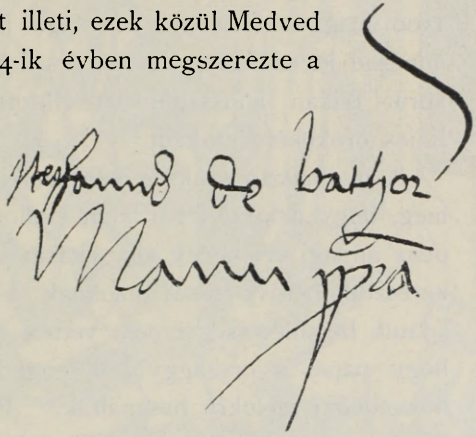 t illeti, ezek közül Medved
4-ik évben megszerezte a
Stephanus de bathor
Manu ppra